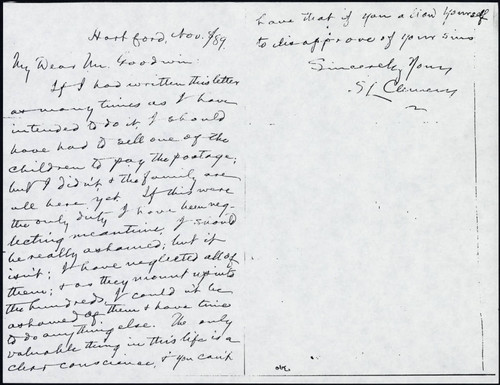 Hartford, Nov. /89.
My Dear Mr. Goodwin:
If I had written this letter
as many times as I have
intended to do it, I should
have had to sell one of the
children to pay the postage;
but I didn't & the family are
all here yet. If this were
the only duty I have been neg-
lecting meantime, I should
be really ashamed; but it
isn't; I have neglected all of
them; & as they mount up into
the hundreds, I couldn't be
ashamed of them & have time
to do anything else. The only
valuable thing in this life is a
clear conscience, & you can't
have that if you allow yourself
to disapprove of your sins
Sincerely Yours
S L Clemens